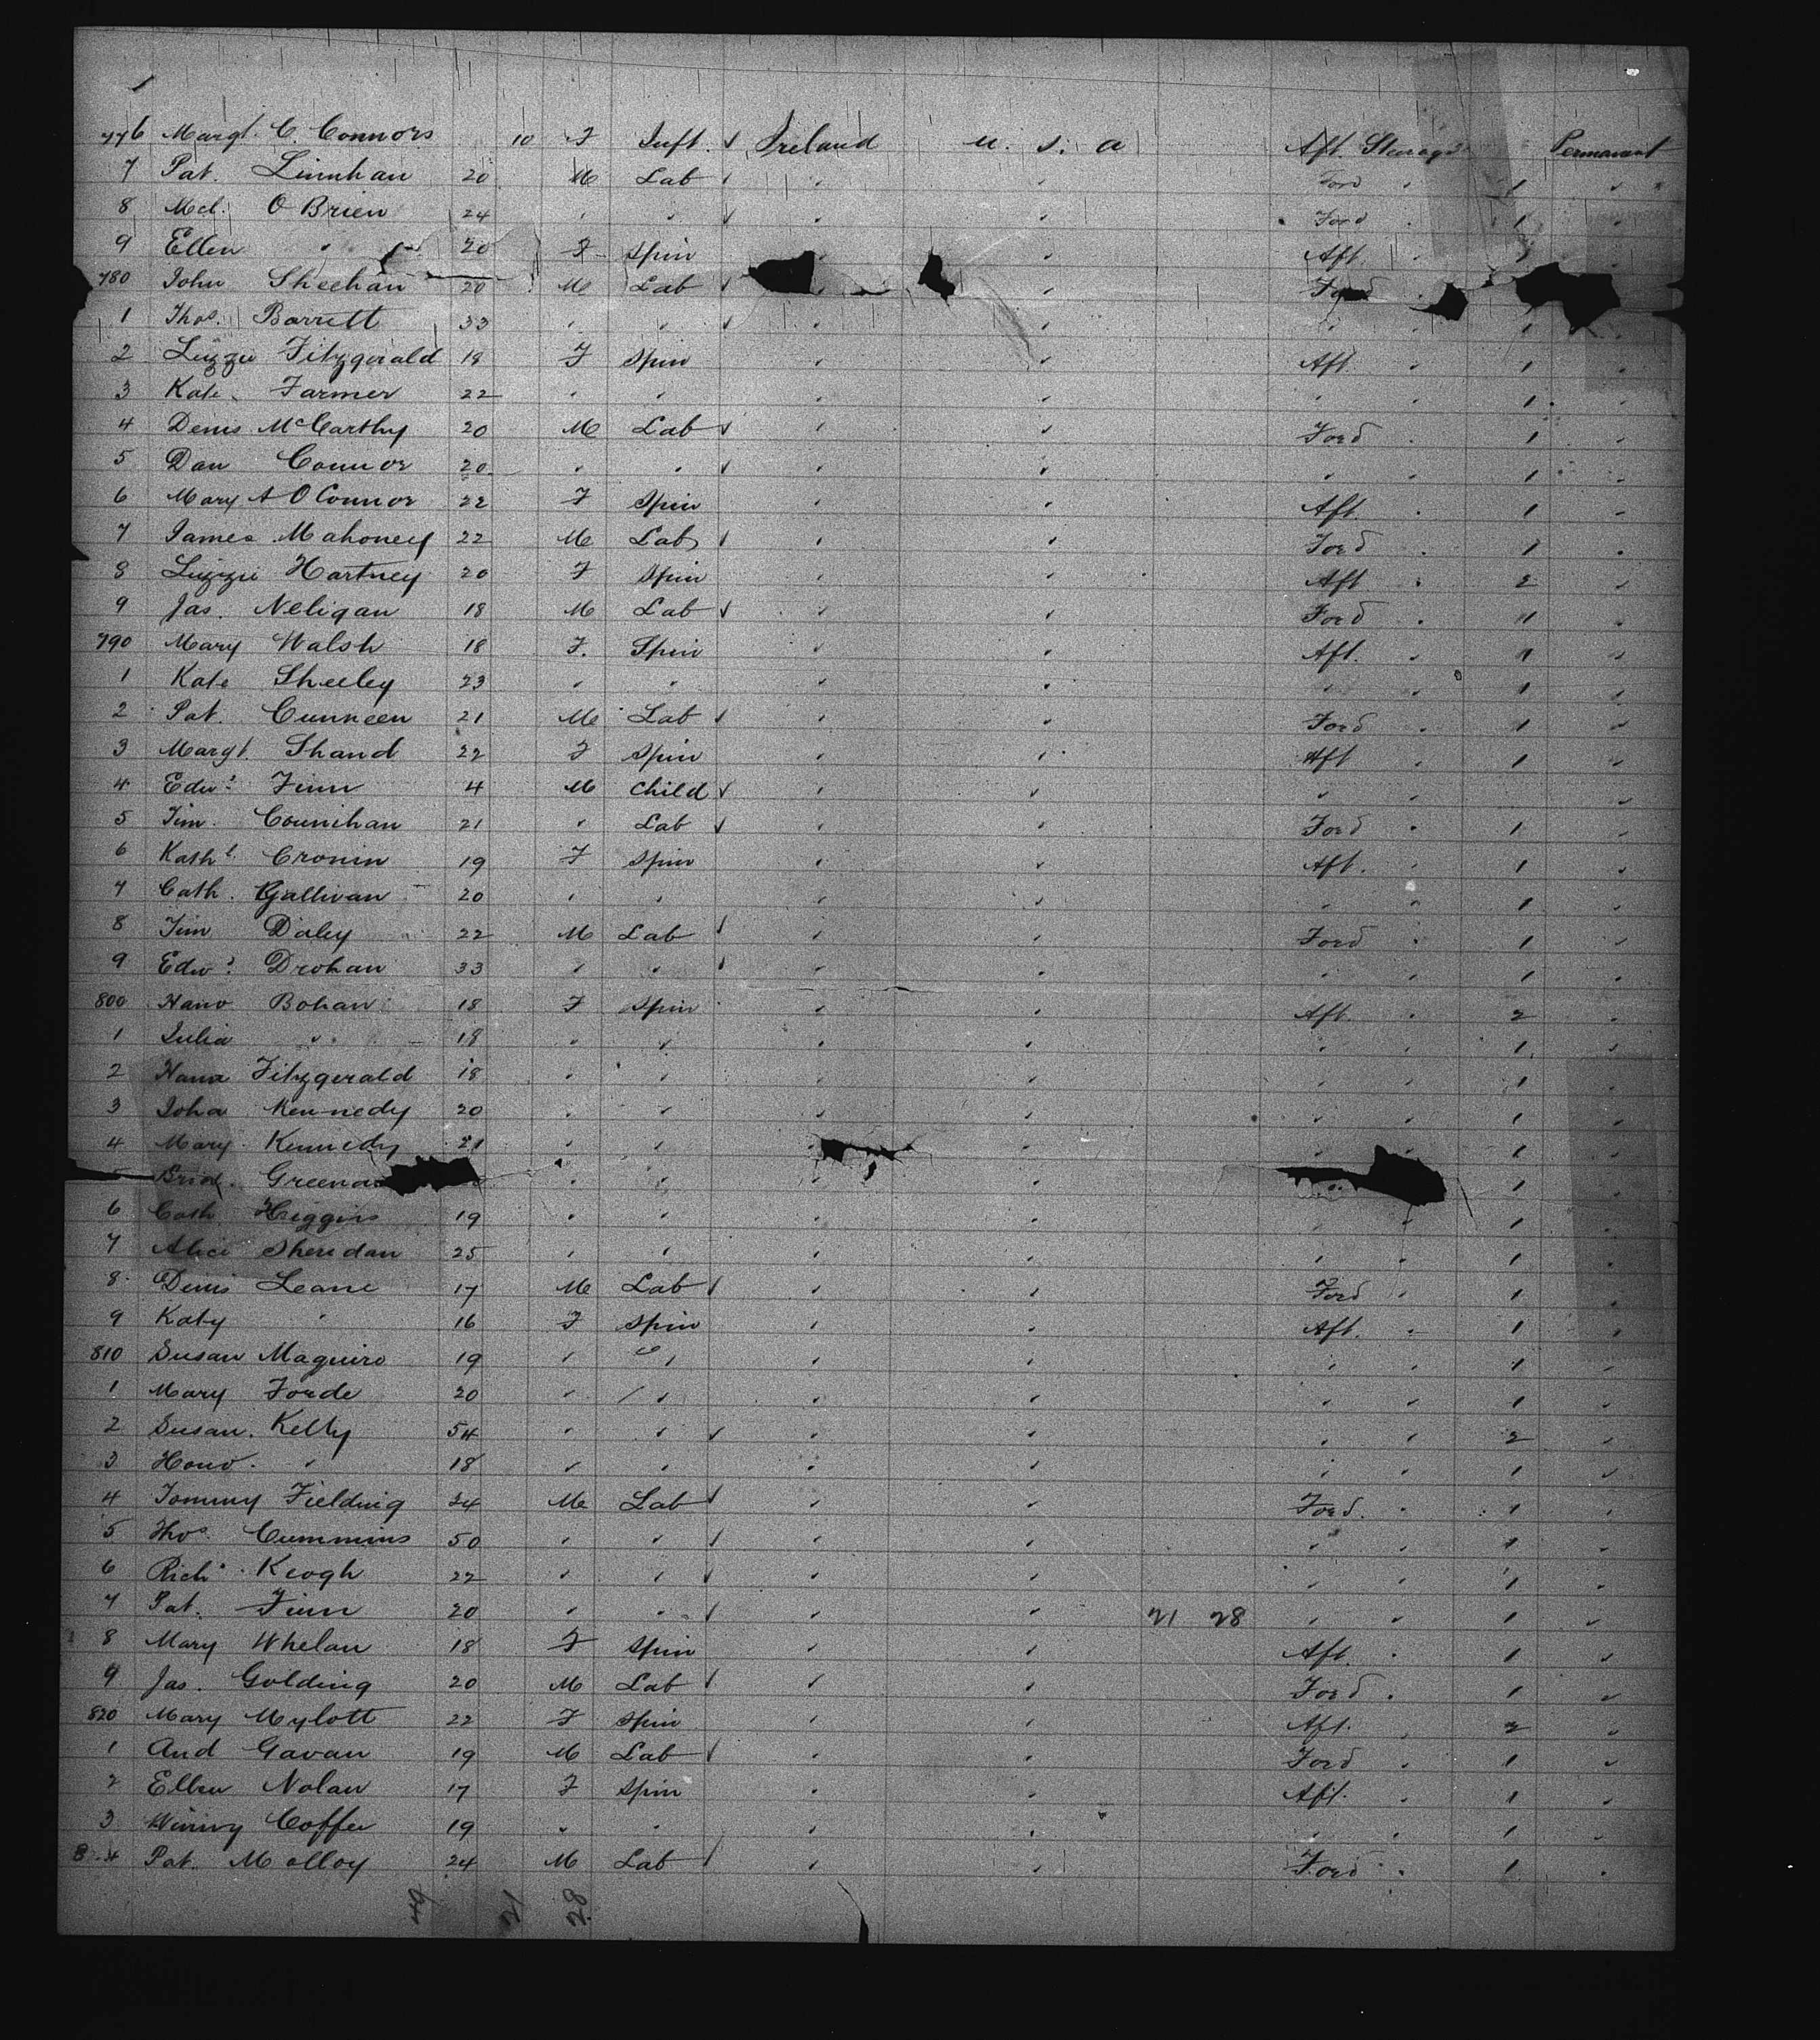 776 Margt. C. Connors 10 F Inft. ✓ Ireland U. S. A Aft. Steerage Permanent
7 Pat. Linnhan 20 M Lab ✓ " " Ford " 1 "
8 Mcl. O'Brien 24 " " ✓ " " Ford " 1 "
9 Ellen " 20 F Spin " " Aft. "
780 John Sheehan 20 M Lab ✓ " " Ford
1 Thos. Barrett 33 " " ✓ " " " " 1 "
2 Lizzie Fitzgerald 18 F Spin " " Aft. " 1 "
3 Kate Farmer 22 " " " " " " 1 "
4 Denis McCarthy 20 M Lab ✓ " " Ford " 1 "
5 Dan Connor 20 " " ✓ " " " " 1 "
6 Mary A O'Connor 22 F Spin " " Aft. " 1 "
7 James Mahoney 22 M Lab ✓ " " Ford " 1 "
8 Lizzie Hartney 20 F Spin " " Aft " 2 "
9 Jas. Neligan 18 M Lab ✓ " " Ford " 1 "
790 Mary Walsh 18 F. Spin " " Aft. " 1 "
1 Kate Sheeley 23 " " " " " " 1 "
2 Pat. Cunneen 21 M Lab ✓ " " Ford " 1 "
3 Margt. Shand 22 F Spin " " Aft " 1 "
4 Edwd. Finn 4 M Child ✓ " " " " "
5 Tim. Counihan 21 " Lab ✓ " " Ford " 1 "
6 Cronin 19 F Spin " " Aft. " 1 "
7 Cath. Gallivan 20 " " " " " " 1 "
8 Tim Daley 22 M Lab ✓ " " Ford " 1 "
9 Edwd. Drohan 33 " " ✓ " " " " 1 "
800 Bohan 18 F Spin " " Aft. " 2 "
1 Julia " 18 " " " " " " 1 "
2 Hana Fitzgerald 18 " " " " " " 1 "
3 Joha Kennedy 20 " " " " " " 1 "
4 Mary Kennedy 21 " " " " " " 1 "
5 Brid. " " " " 1 "
6 Cath Higgins 19 " " " " " " 1 "
7 Alice Sheridan 25 " " " " " " 1 "
8 Denis Leane 17 M Lab ✓ " " Ford " 1 "
9 Katy " 16 F Spin " " Aft. " 1 "
810 Susan Maguire 19 " " " " " " 1 "
1 Mary Forde 20 " " " " " " 1 "
2 Susan Kelly 54 " " ✓ " " " " 2 "
3 " 18 " " " " " " 1 "
4 Tommy Fielding 24 M Lab ✓ " " Ford. " 1 "
5 Thos. Cummins 50 " " ✓ " " " " 1 "
6 Richd. Keogh 22 " " ✓ " " " " 1 "
7 Pat. Finn 20 " " ✓ " " 21 28 " " 1 "
8 Mary Whelan 18 F Spin " " Aft. " 1 "
9 Jas. Golding 20 M Lab ✓ " " Ford " 1 "
820 Mary Mylott 22 F Spin " " Aft. " 2 "
1 And Gavan 19 M Lab ✓ " " Ford " 1 "
2 Ellen Nolan 17 F Spin " " Aft. " 1 "
3 Winny Coffee 19 " " " " " " 1 "
8 4 Pat. Molloy 24 M Lab ✓ " " Ford " 1 "
49 21 28